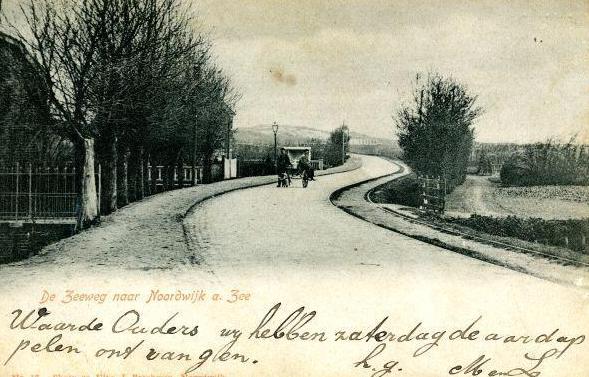 De Zeeweg naar Noordwijk a. Zee
Waarde Ouders wy hebben zaterdag de aardap
pelen ontvangen. h. g. M en L